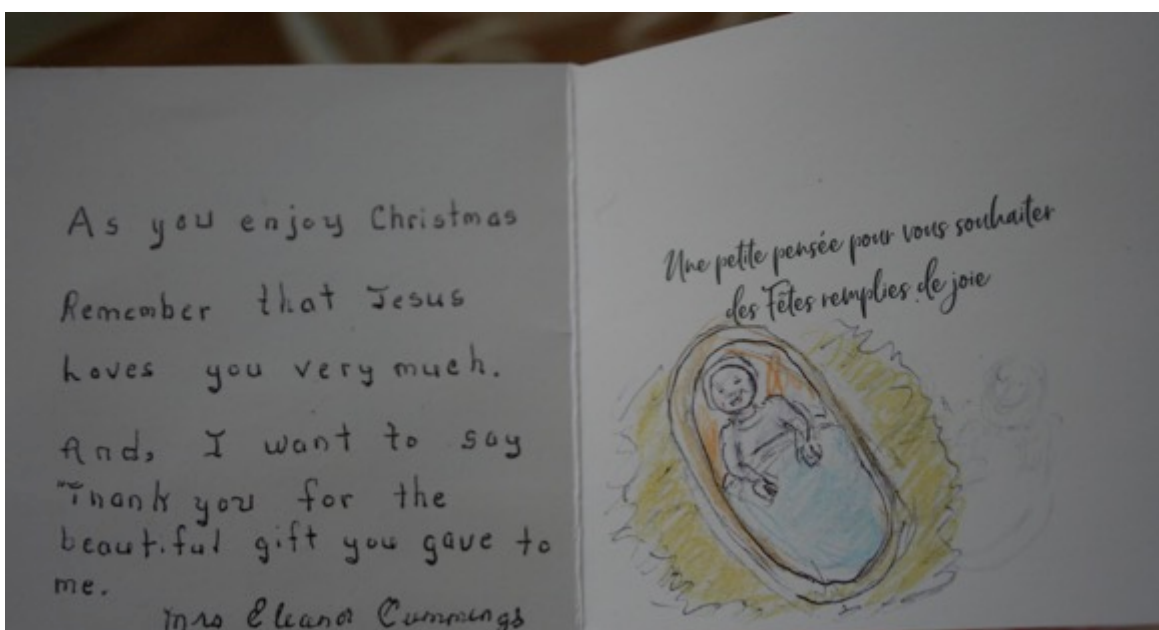 As you enjoy Christmas
Remember that Jesus
Loves you very much.
And, I want to say
"Thank you for the
beautiful gift you gave to
me.
Mrs Eleanor Cummings
Une petite pensée pour vous souhaiter
des Fêtes remplies de joie